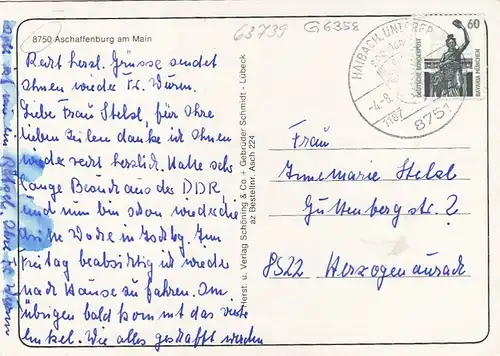 8750 Aschaffenburg am Main
63739
G6358
Recht herzl. Grüsse sendet
Ihnen wieder Fr. Wurm.
Liebe Frau Stelzl, für Ihre
lieben Zeilen danke ich Ihnen
wieder recht herzlich. Hatte sehr
lange Besuch aus der DDR,
und nun bin schon wieder die
Woche in
Freitag beabsichtig ich wieder
nach Hause zu fahren. Im
übrigen bald kommt das vierte
Enkel. Wie alles geschafft werden
Herst. u. Verlag Schöning & Co + Gebrüder Schmidt - Lübeck
az Bestellnr. Asch 224
HAIBACH, UNTERFR
-4.-8.
8751
60
DEUTSCHE BUNDESPOST
BAVARIA MÜNCHEN
Frau
Annemarie Stelzl
Guttenbergstr. 2
8522 Herzogenaurach